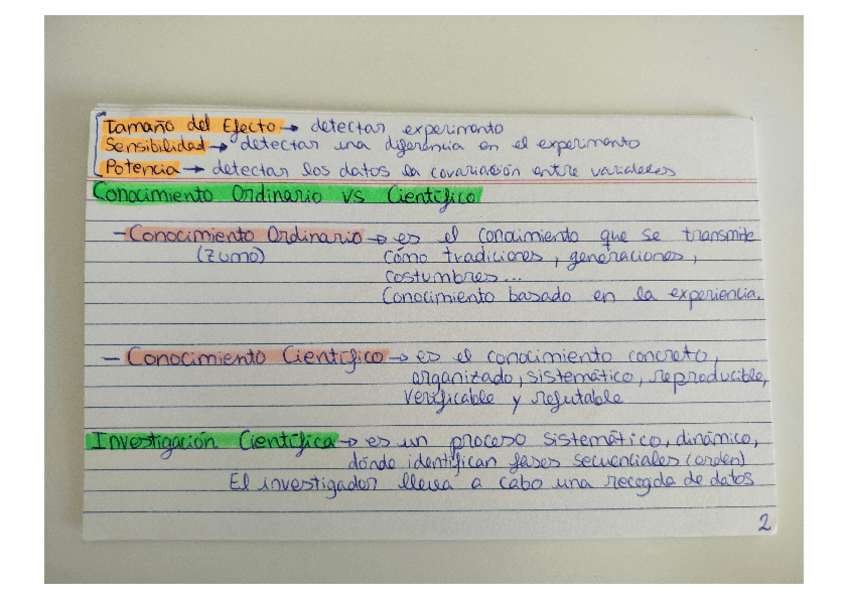 Tamaño del Efecto → detectar experimento
Sensibilidad → detectar una diferencia en el experimento
Potencia → detectar los datos la covariación entre variables
Conocimiento Ordinario vs Científico
- Conocimiento Ordinario → es el conocimiento que se transmite
(zumo) cómo tradiciones, generaciones,
costumbres...
Conocimiento basado en la experiencia.
- Conocimiento Científico → es el conocimiento concreto,
organizado, sistemático, reproducible,
verificable y refutable
Investigación Científica → es un proceso sistemático, dinámico,
dónde identifican fases secuenciales (orden)
El investigador lleva a cabo una recogda de datos
2